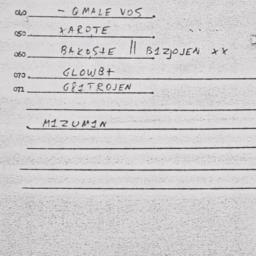 040 - GMALE VOS
050 XAROTE
060 BAKOSTE || BIZJOJEN XX
070 GLOWB+
072 GEITROJEN
MIZUMIN